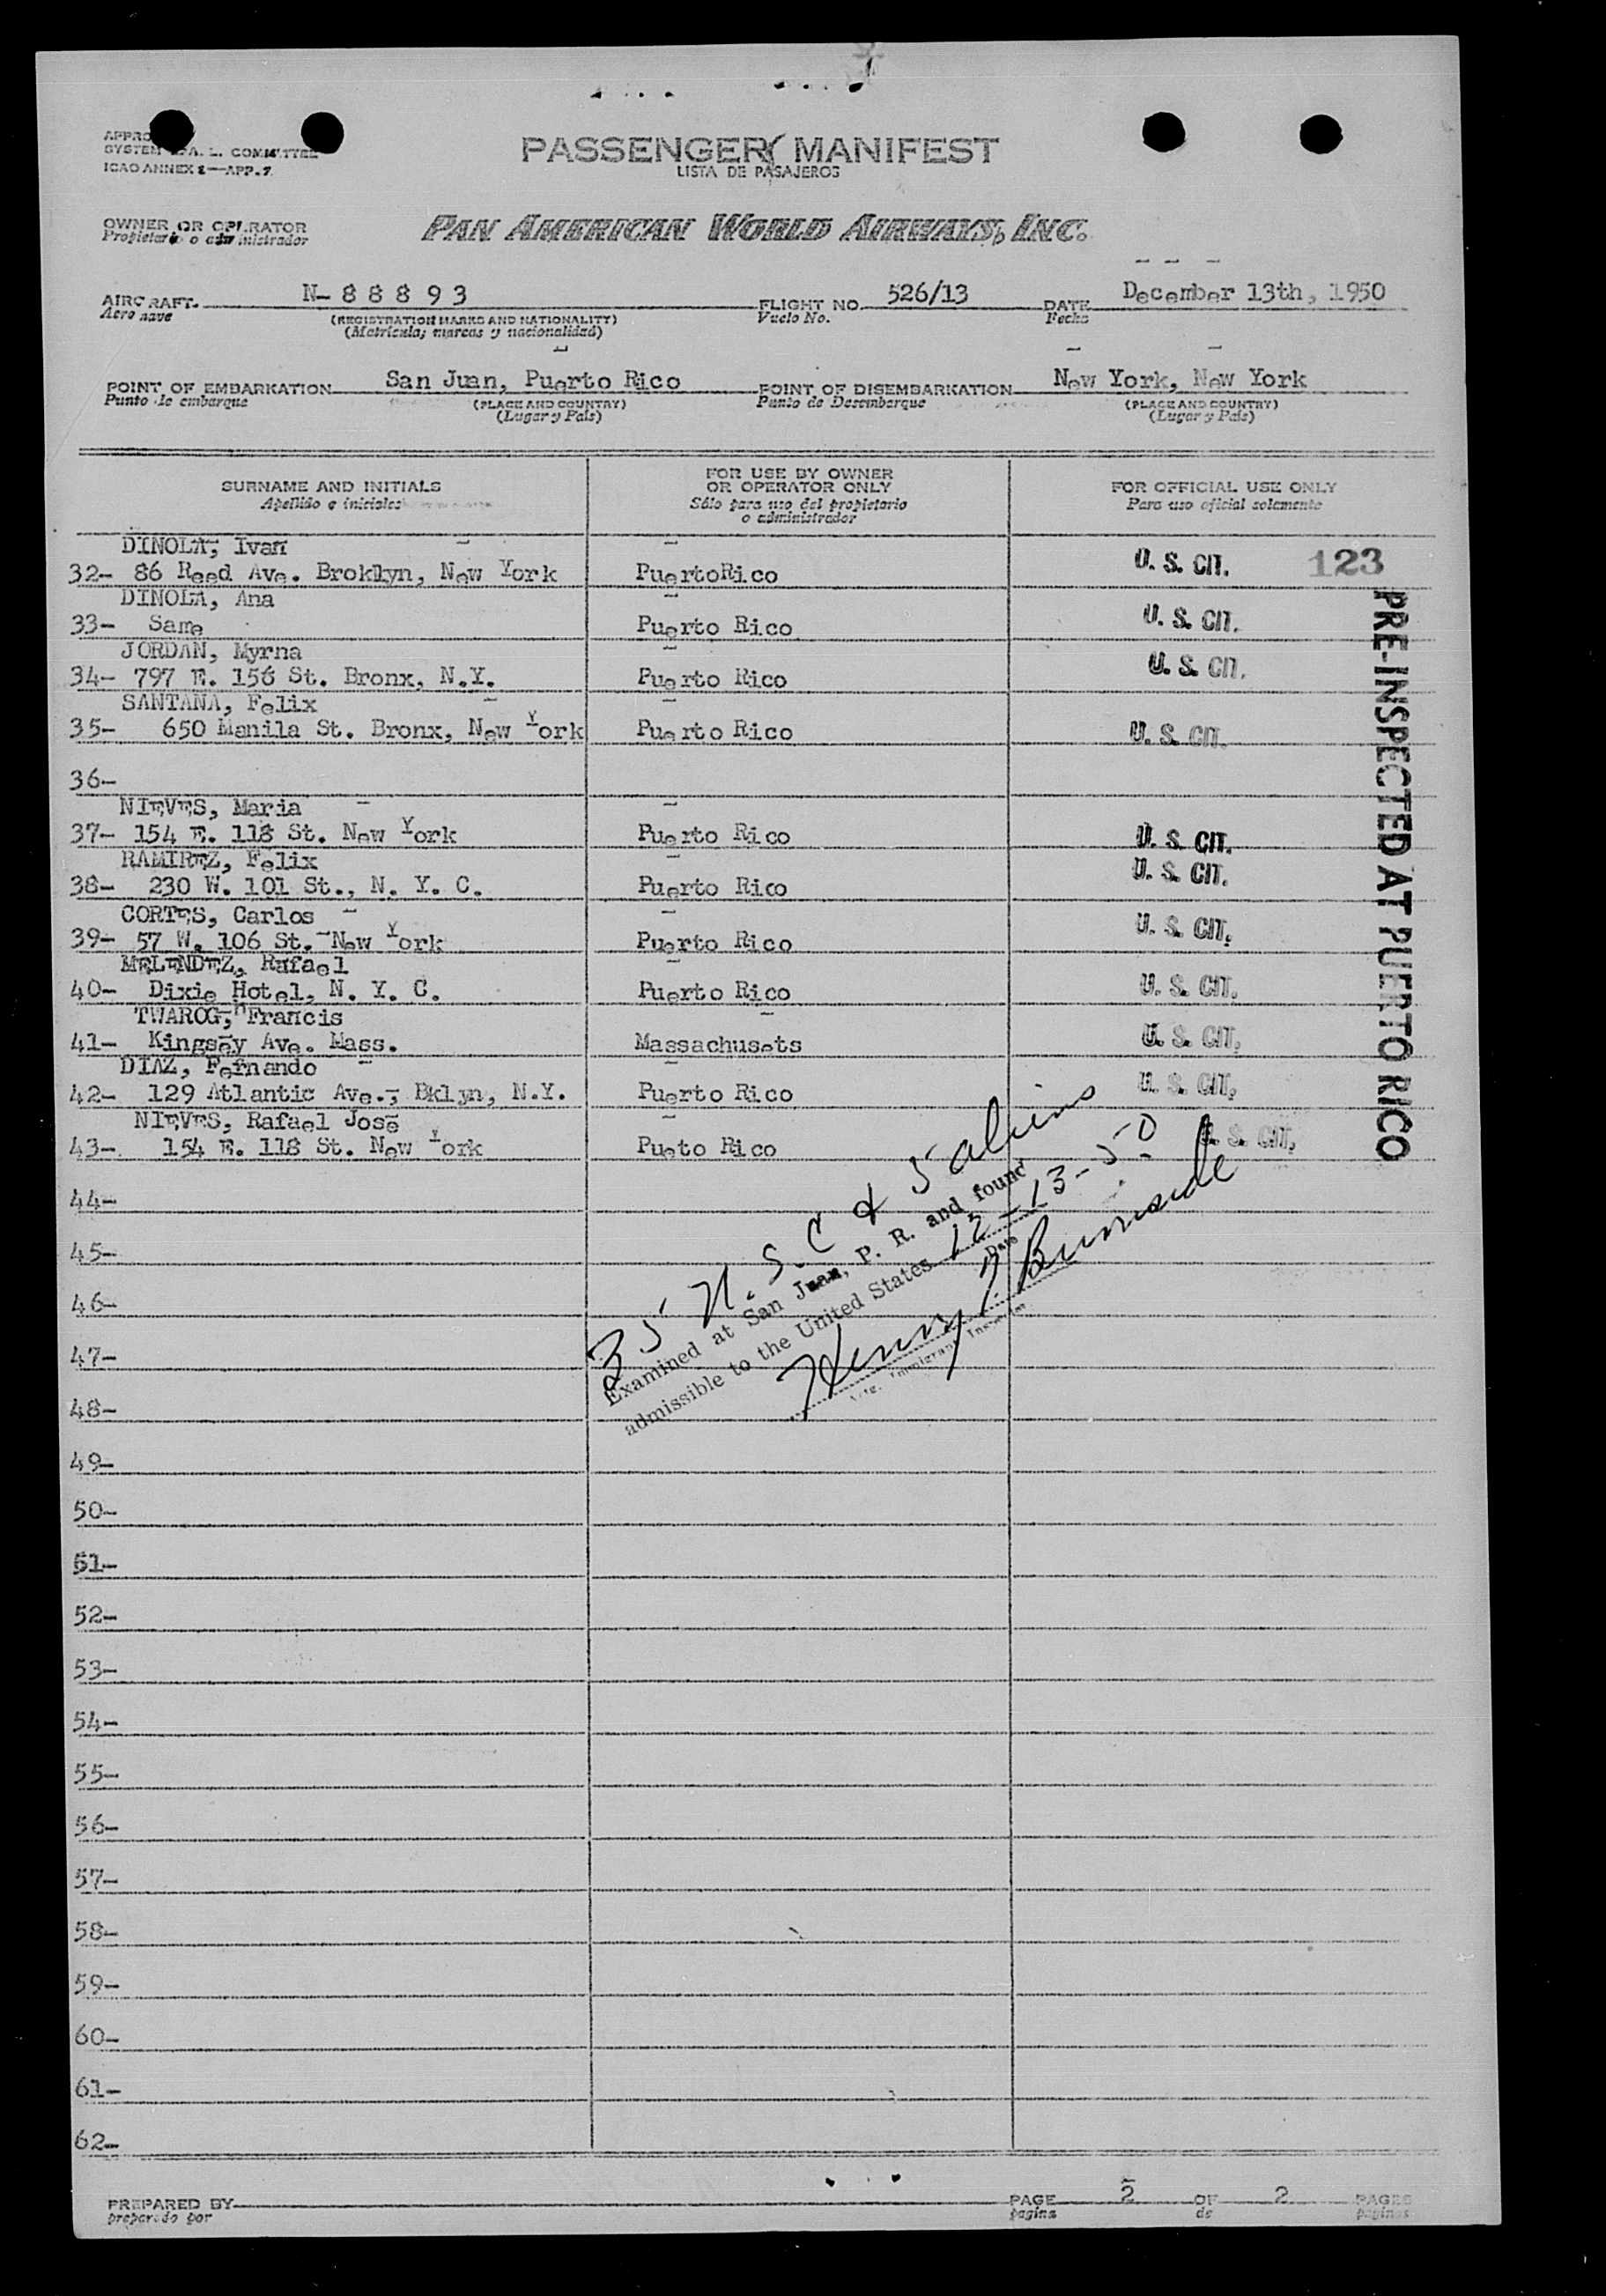 PASSENGER MANIFEST
LISTA DE PASAJEROS
ICAO ANNEX 2—APP. 7
OWNER OR OPERATOR
Propietario o administrador
PAN AMERICAN WORLD AIRWAYS, INC.
AIRCRAFT. N- 8 8 8 9 3 FLIGHT NO. 526/13 DATE December 13th, 1950
Aero nave (REGISTRATION MARKS AND NATIONALITY) Vuelo No. Fecha
(Matricula; marcas y nacionalidad)
POINT OF EMBARKATION San Juan, Puerto Rico POINT OF DISEMBARKATION New York, New York
Punto de embarque (PLACE AND COUNTRY) Punto de Desembarque (PLACE AND COUNTRY)
(Lugar y País) (Lugar y País)
SURNAME AND INITIALS
Apellido e iniciales
FOR USE BY OWNER
OR OPERATOR ONLY
Sólo para uso del propietario
o administrador
FOR OFFICIAL USE ONLY
Para uso oficial solamente
DINOLA, Ivan
32- 86 Reed Ave. Broklyn, New York PuertoRico U. S. CIT. 123
DINOLA, Ana
33- Same Puerto Rico U. S. CIT.
JORDAN, Myrna
34- 797 E. 156 St. Bronx, N.Y. Puerto Rico U. S. CIT.
SANTANA, Felix
35- 650 Manila St. Bronx, New York Puerto Rico U. S. CIT.
36-
NIEVES, Maria
37- 154 E. 118 St. New York Puerto Rico U. S. CIT.
RAMIREZ, Felix
38- 230 W. 101 St., N. Y. C. Puerto Rico U. S. CIT.
CORTES, Carlos
39- 57 W. 106 St. New York Puerto Rico U. S. CIT.
MELENDEZ, Rafael
40- Dixie Hotel, N. Y. C. Puerto Rico U. S. CIT.
TWAROG, Francis
41- Kingsey Ave. Mass. Massachusets U. S. CIT.
DIAZ, Fernando
42- 129 Atlantic Ave., Bklyn, N.Y. Puerto Rico U. S. CIT.
NIEVES, Rafael Jose
43- 154 E. 118 St. New York Pueto Rico U. S. CIT.
PRE-INSPECTED AT PUERTO RICO
44-
45-
46-
47-
48-
49-
50-
51-
52-
53-
54-
55-
56-
57-
58-
59-
60-
61-
62-
Examined at San Juan, P. R. and found
admissible to the United States 12-13-50
Date
Henry Burnside
PREPARED BY PAGE 2 OF 2 PAGES
preparado por pagina de paginas